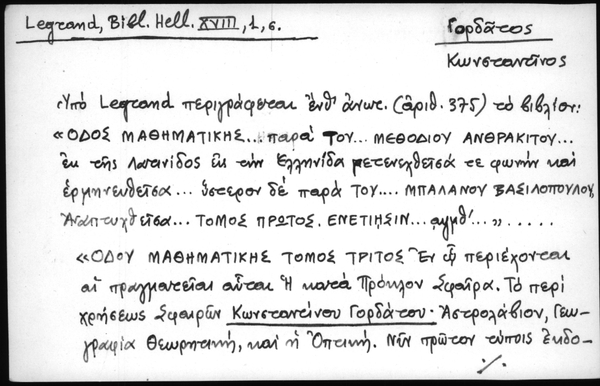 Legrand, Bibl. Hell. XVIII, 1, 6.
Γορδᾶτος
Κωνσταντῖνος
Ὑπό Legrand περιγράφεται ἔνθ' ἄνωτ. (ἀριθ. 375) τὸ βιβλίον:
«ΟΔΟΣ ΜΑΘΗΜΑΤΙΚΗΣ... παρά ΤΟΥ... ΜΕΘΟΔΙΟΥ ΑΝΘΡΑΚΙΤΟΥ...
ἐκ τῆς Λατινίδος εἰς τὴν Ἑλληνίδα μετενεχθεῖσά τε φωνὴν καὶ
ἑρμηνευθεῖσα... ὕστερον δέ παρά ΤΟΥ... ΜΠΑΛΑΝΟΥ ΒΑΣΙΛΟΠΟΥΛΟΥ
Ἀναπτυχθεῖσα... ΤΟΜΟΣ ΠΡΩΤΟΣ. ΕΝΕΤΙΗΣΙΝ... αψμθ'...» .....
«ΟΔΟΥ ΜΑΘΗΜΑΤΙΚΗΣ ΤΟΜΟΣ ΤΡΙΤΟΣ Ἐν ᾧ περιέχονται
αἱ πραγματεῖαι αὗται Ἡ κατά Πρόκλον Σφαῖρα. Τὸ περί
χρήσεως Σφαιρῶν Κωνσταντίνου Γορδάτου· Ἀστρολάβιον, Γεω-
γραφία Θεωρητική, καὶ ἡ Ὀπτική. Νῦν πρῶτον τύποις ἐκδο-
./.